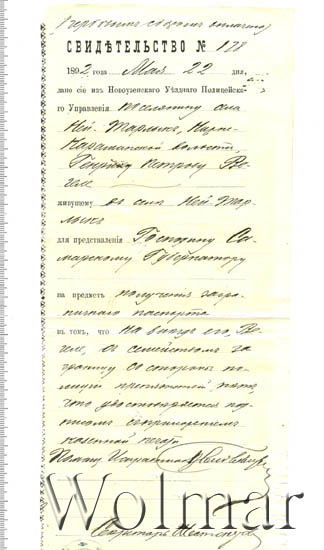 Гербовымъ сборомъ оплачено
СВИДѢТЕЛЬСТВО № 178
1892 года Мая 22 дня,
дано сіе изъ Новоузенскаго Уѣзднаго Полицейска-
го Управленія поселянину села
Ней-Тарлыкъ, Нижне-
Караманской волости,
Генриху Петрову Ве-
гелю
живущему въ селѣ Ней-Тар-
лыкъ
для представленія Господину Са-
марскому Губернатору
на предметъ полученія загра-
ничнаго паспорта
въ томъ, что на выѣздъ его, Ве-
геля, съ семействомъ за
границу со стороны по-
лиціи препятствій нѣтъ,
что удостовѣряется под-
писью съ приложеніемъ
казенной печати
Помощ. Исправника
Секретарь
Wolmar